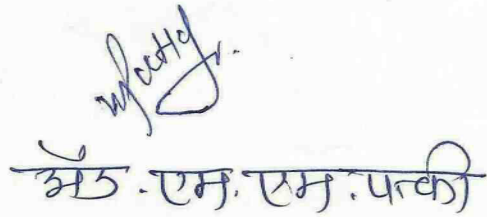 अॅड. एम. एम. पत्की